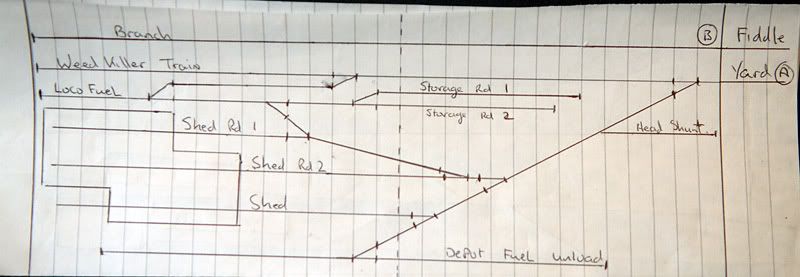 Branch
B
Fiddle
Weed Killer Train
Yard A
Loco Fuel
Storage Rd 1
Storage Rd 2
Shed Rd 1
Head Shunt
Shed Rd 2
Shed
Depot Fuel unload